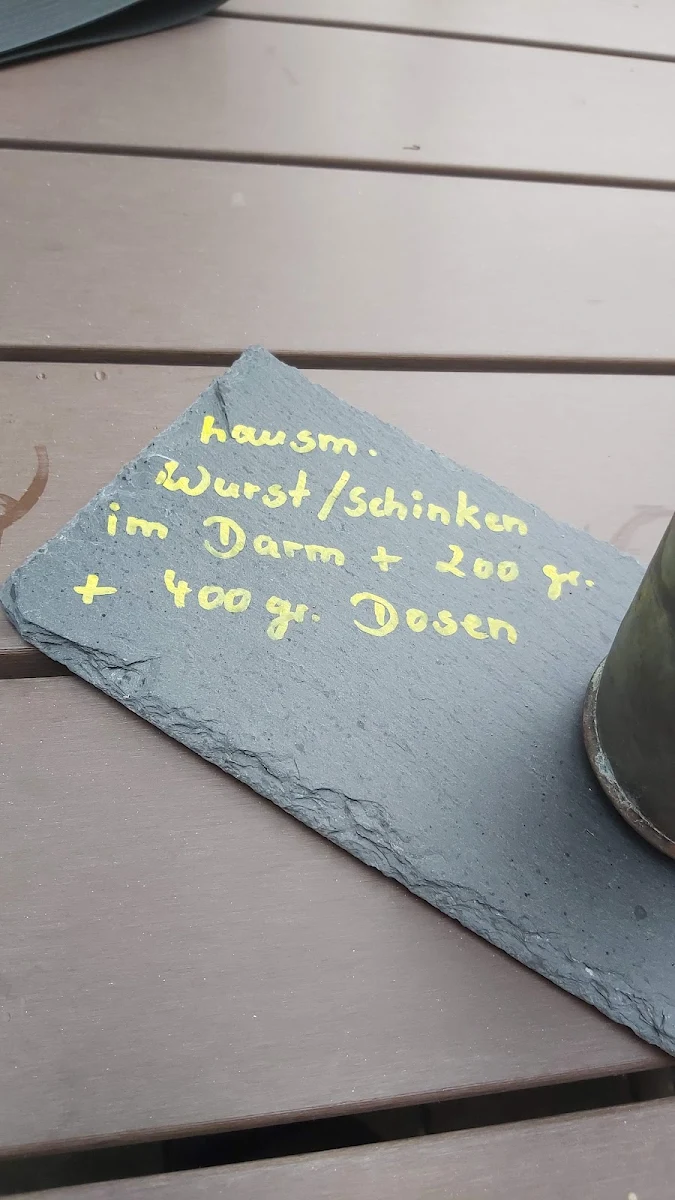 hausm.
Wurst/Schinken
im Darm + 200 gr.
+ 400 gr. Dosen